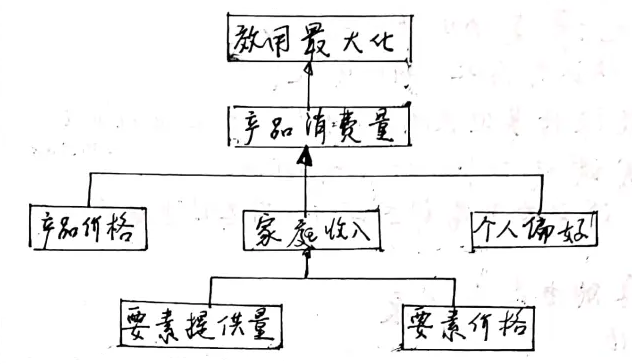 效用最大化
产品消费量
产品价格
家庭收入
个人偏好
要素提供量
要素价格